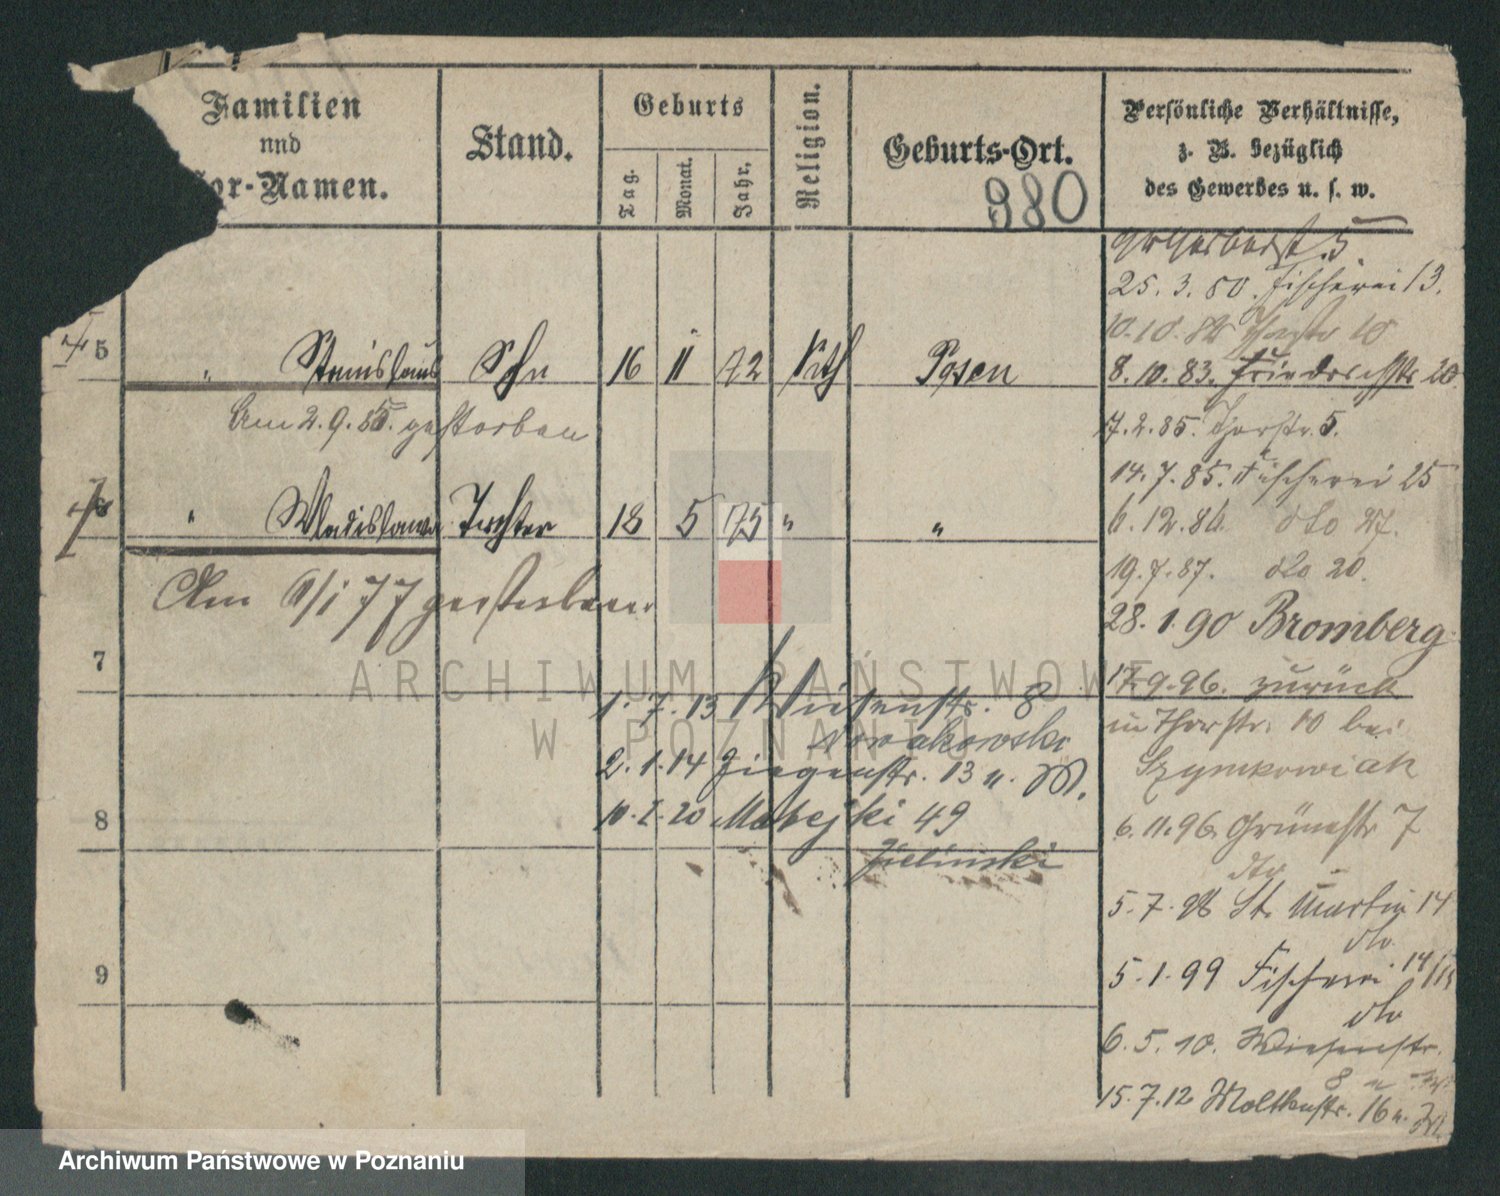 Familien
und
Vor-Namen.
Stand.
Geburts
Tag.
Monat.
Jahr.
Religion.
Geburts-Ort.
980
Persönliche Verhältnisse,
z. B. bezüglich
des Gewerbes u. s. w.
5
25. 3. 80. Fischerei 13.
5 " Stanislaus Sohn 16 11 72 kth Posen
8. 10. 83. Friedrichstr 20.
Am 2. 9. 85. gestorben
17. 2. 85. Thorstr. 5.
14. 7. 85. Fischerei 25
6 " Wladislawa Tochter 18 5 75 " "
6. 12. 86. dto 27.
Am 6/1 77 gestorben
19. 7. 87. dto 20.
28. 1. 90 Bromberg
7
17. 9. 96. zurück
in Thorstr. 10 bei
Szymkowiak
1. 7. 13 Wiesenstr. 8
Nowakowski
2. 1. 14 Ziegenstr. 13 u. W.
10. I. 20 Matejki 49
Zielinski
8
6. 11. 96 Grünestr 7
dto
5. 7. 98 St. Martin 14
dto
9
5. 1. 99 Fischerei 14/15
dto
6. 5. 10. Wiesenstr.
8
15. 7. 12 Moltkestr. 16
ARCHIWUM PAŃSTWOWE
W POZNANIU
Archiwum Państwowe w Poznaniu